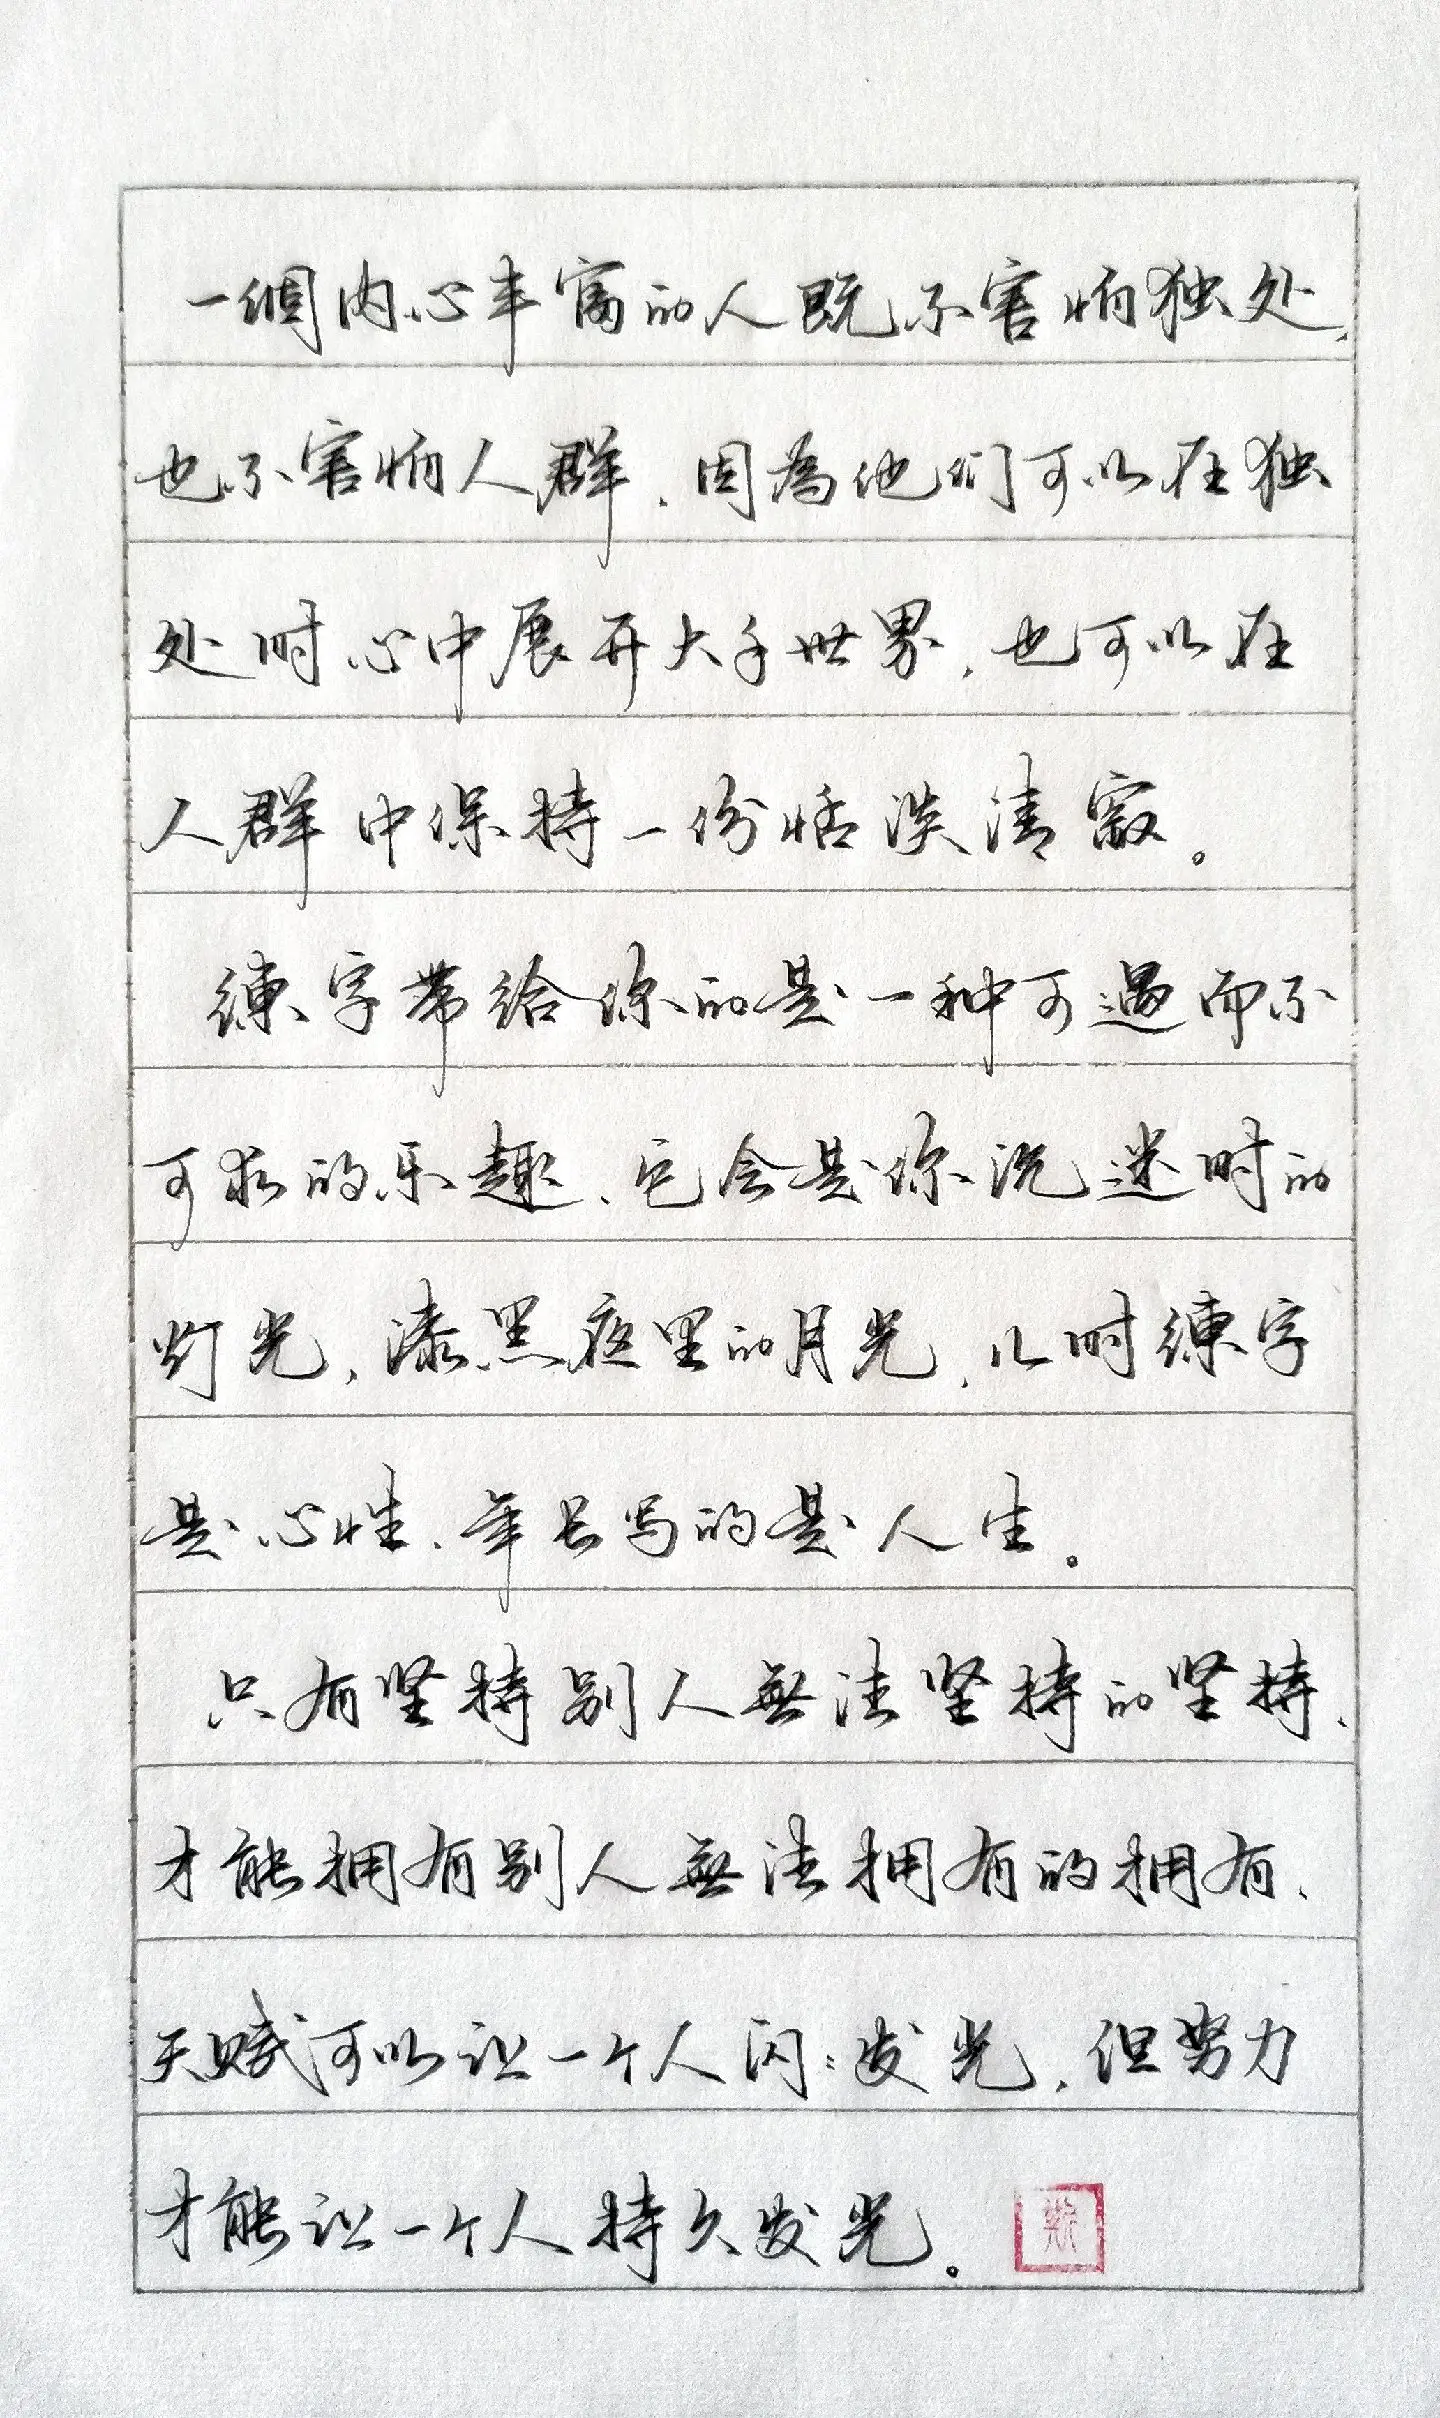 一個内心丰富的人既不害怕独处，
也不害怕人群，因為他们可以在独
处时心中展开大千世界，也可以在
人群中保持一份恬淡清寂。
練字带给你的是一种可遇而不
可求的乐趣，它会是你沉迷时的
灯光，漆黑夜里的月光，儿时練字
是心性，年长写的是人生。
只有坚持别人無法坚持的坚持，
才能拥有别人無法拥有的拥有，
天赋可以让一个人闪：发光，但努力
才能让一个人持久发光。